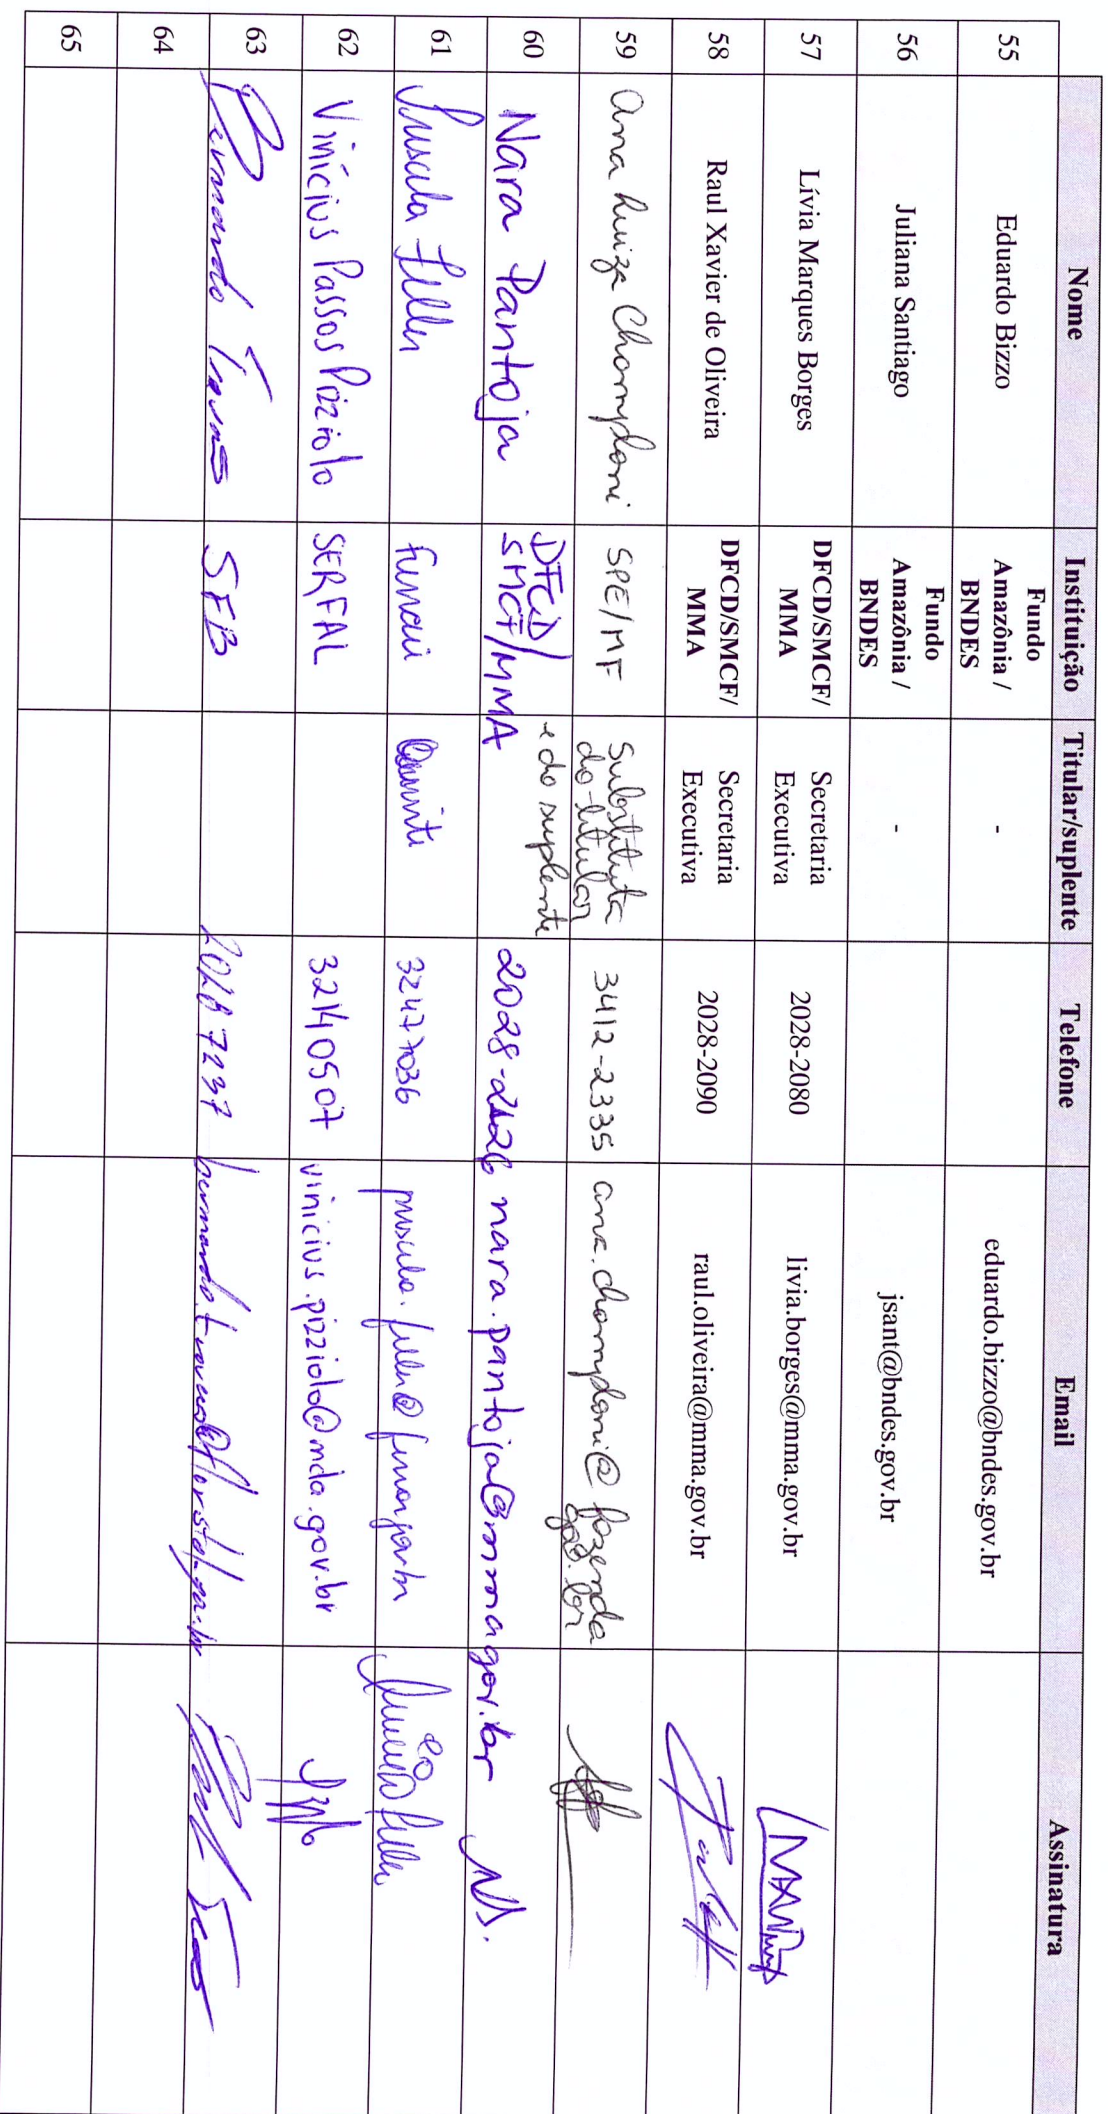 Nome Instituição Titular/suplente Telefone Email Assinatura
55 Eduardo Bizzo Fundo Amazônia / BNDES - eduardo.bizzo@bndes.gov.br
56 Juliana Santiago Fundo Amazônia / BNDES - jsant@bndes.gov.br
57 Lívia Marques Borges DFCD/SMCF/ MMA Secretaria Executiva 2028-2080 livia.borges@mma.gov.br
58 Raul Xavier de Oliveira DFCD/SMCF/ MMA Secretaria Executiva 2028-2090 raul.oliveira@mma.gov.br
59 Ana Luiza Champloni SPE/MF Substituta do titular e do suplente 3412-2335 ana.champloni@fazenda gov.br
60 Nara Pantoja DFCD/ SMCF/MMA 2028-2126 nara.pantoja@mma.gov.br
61 Funai 32477036
62 Vinícius Passos Pizziolo SERFAL 32140507 vinicius.pizziolo@mda.gov.br
63 SFB 7237
64
65